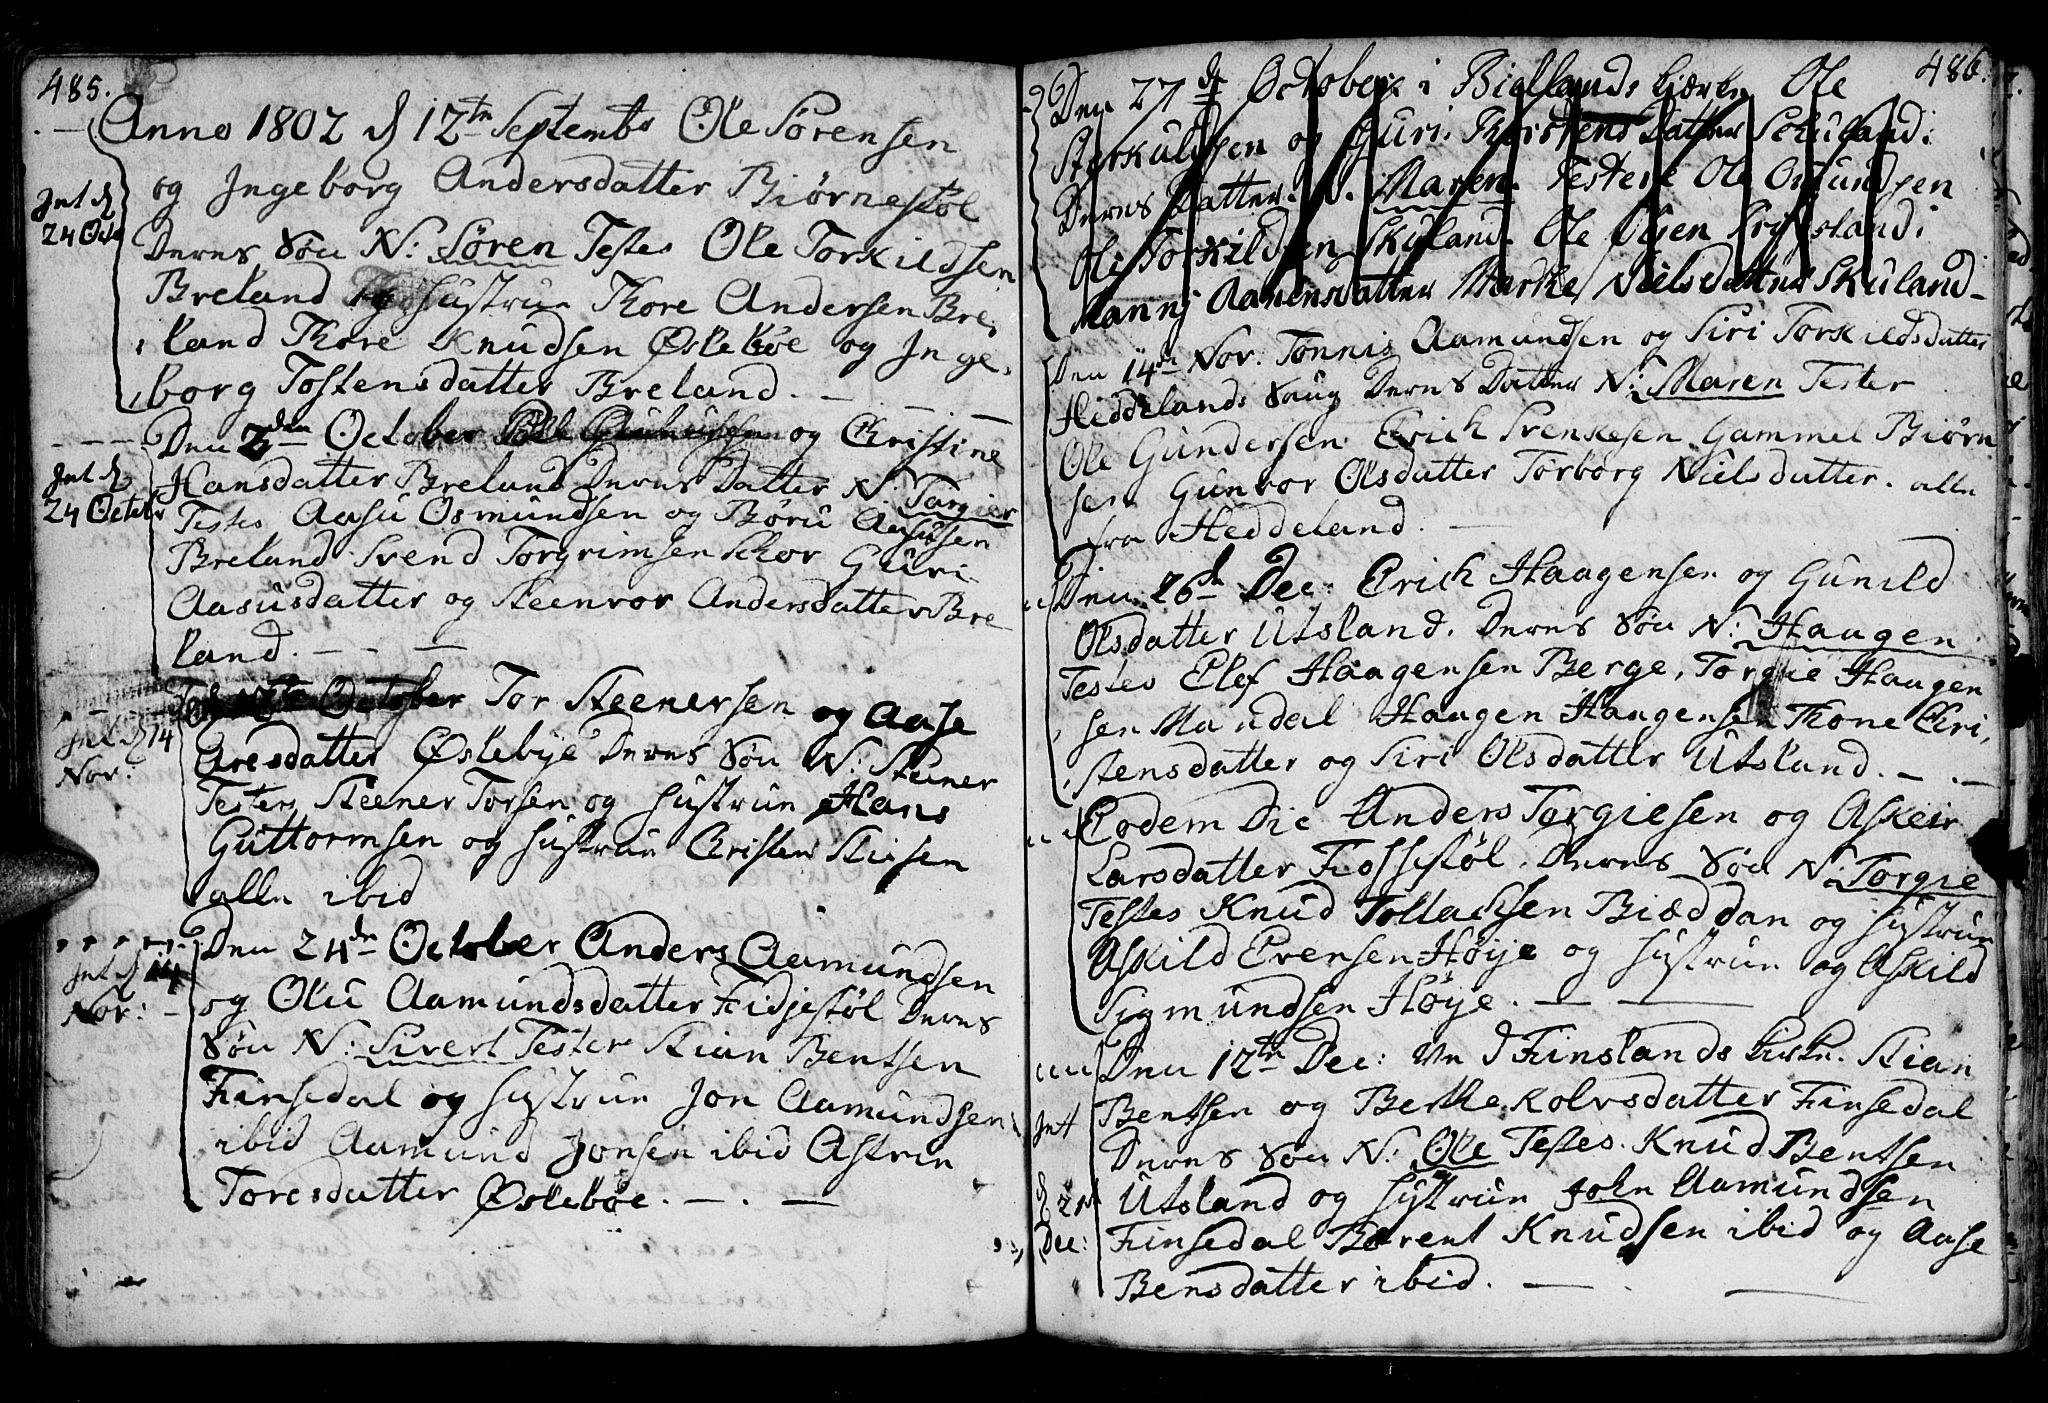 485.
Anno 1802 d 12te Septembr Ole Sörensen
og Ingeborg Andersdatter Biörnestöl
Int d
24 Octr
Deres Sön N: Sören Testes Ole Torkildsen
Breland og Hustrue Thore Andersen Bre
land Thore Knudsen Øsleböe og Inge
borg Tostensdatter Breland.
Den 3den October og Christine
Int d
24 Octobr
Hansdatter Breland Deres Datter N. Targier
Testes Aasu Osmundsen og Böru Aasusen
Breland Svend Torgrimsen Skor Guri
Aasusdatter og Steenvor Andersdatter Bre
land.
October Tor Steenersen og Aase
Int d 14
Nov:
Aresdatter Øslebye Deres Sön N: Steiner
Testes Steener Torsen og Hustrue Hans
Guttormsen og Hustrue Christen Stiesen
alle ibid
Den 24de October Anders Aamundsen
Int d 14
Nov:
og Olu Aamundsdatter Fidjestöl Deres
Sön N: Sivert Testes Stian Bentsen
Finsedal og Hustrue Jon Aamundsen
ibid Aamund Jonsen ibid Astrin
Toresdatter Øsleböe.
486.
Den 27de October i Biellands Kierke Ole
Sterkulssen og Guri Thorstens Datter Sckuland
Deres Datter N. Maren. Testere Ole Osmundsen
Ole Torkildsen Skuland. Ole Olsen
Manni Aanensdatter Marthe Nielsdatter Skuland
Den 14de Nov: Tönnis Aamundsen og Siri Torkildsdatter
Heddelands Saug Deres Datter N: Maren Testes
Ole Gundersen Erich Svenkesen Gammel Biörn
sen Gunvor Olsdatter Torborg Nielsdatter. alle
fra Heddeland.
Den 26d Dec: Erich Haagensen og Gunild
Olsdatter Utsland. Deres Sön N: Haagen
Testes Elef Haagensen Berge, Torgie Haagen
sen Mandal Haagen Haagensen Thone Chri
stensdatter og Siri Olsdatter Utsland.
Eodem Die Anders Torgiesen og Askeir
Larsdatter Fossestöl. Deres Sön N: Torgie
Testes Knud Tollachsen Bieddan og Hustrue
Askild Evensen Höije og Hustrue og Askild
Sigmundsen Höije.
Den 12te Dec: Finslands Kirke. Stian
Int
d 21
Dec:
Bentsen og Berthe Kolvsdatter Finsedal
Deres Sön N: Ole Testes Knud Bentsen
Utsland og Hustrue John Aamundsen
Finsedal Berent Knudsen ibid og Aase
Bensdatter ibid.